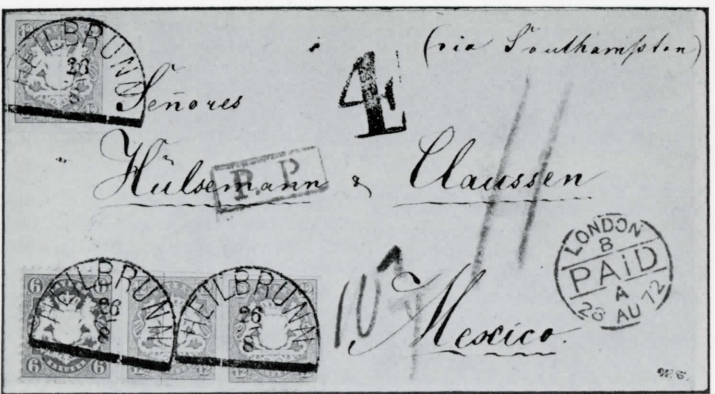 (via Southampton)
HEILBRUNN
26
8
4
Señores
Hülsemann & Claussen
P.P.
LONDON
B
PAID
A
28 AU 72
HEILBRUNN
26
8
HEILBRUNN
26
8
Mexico.
6 6
6 6